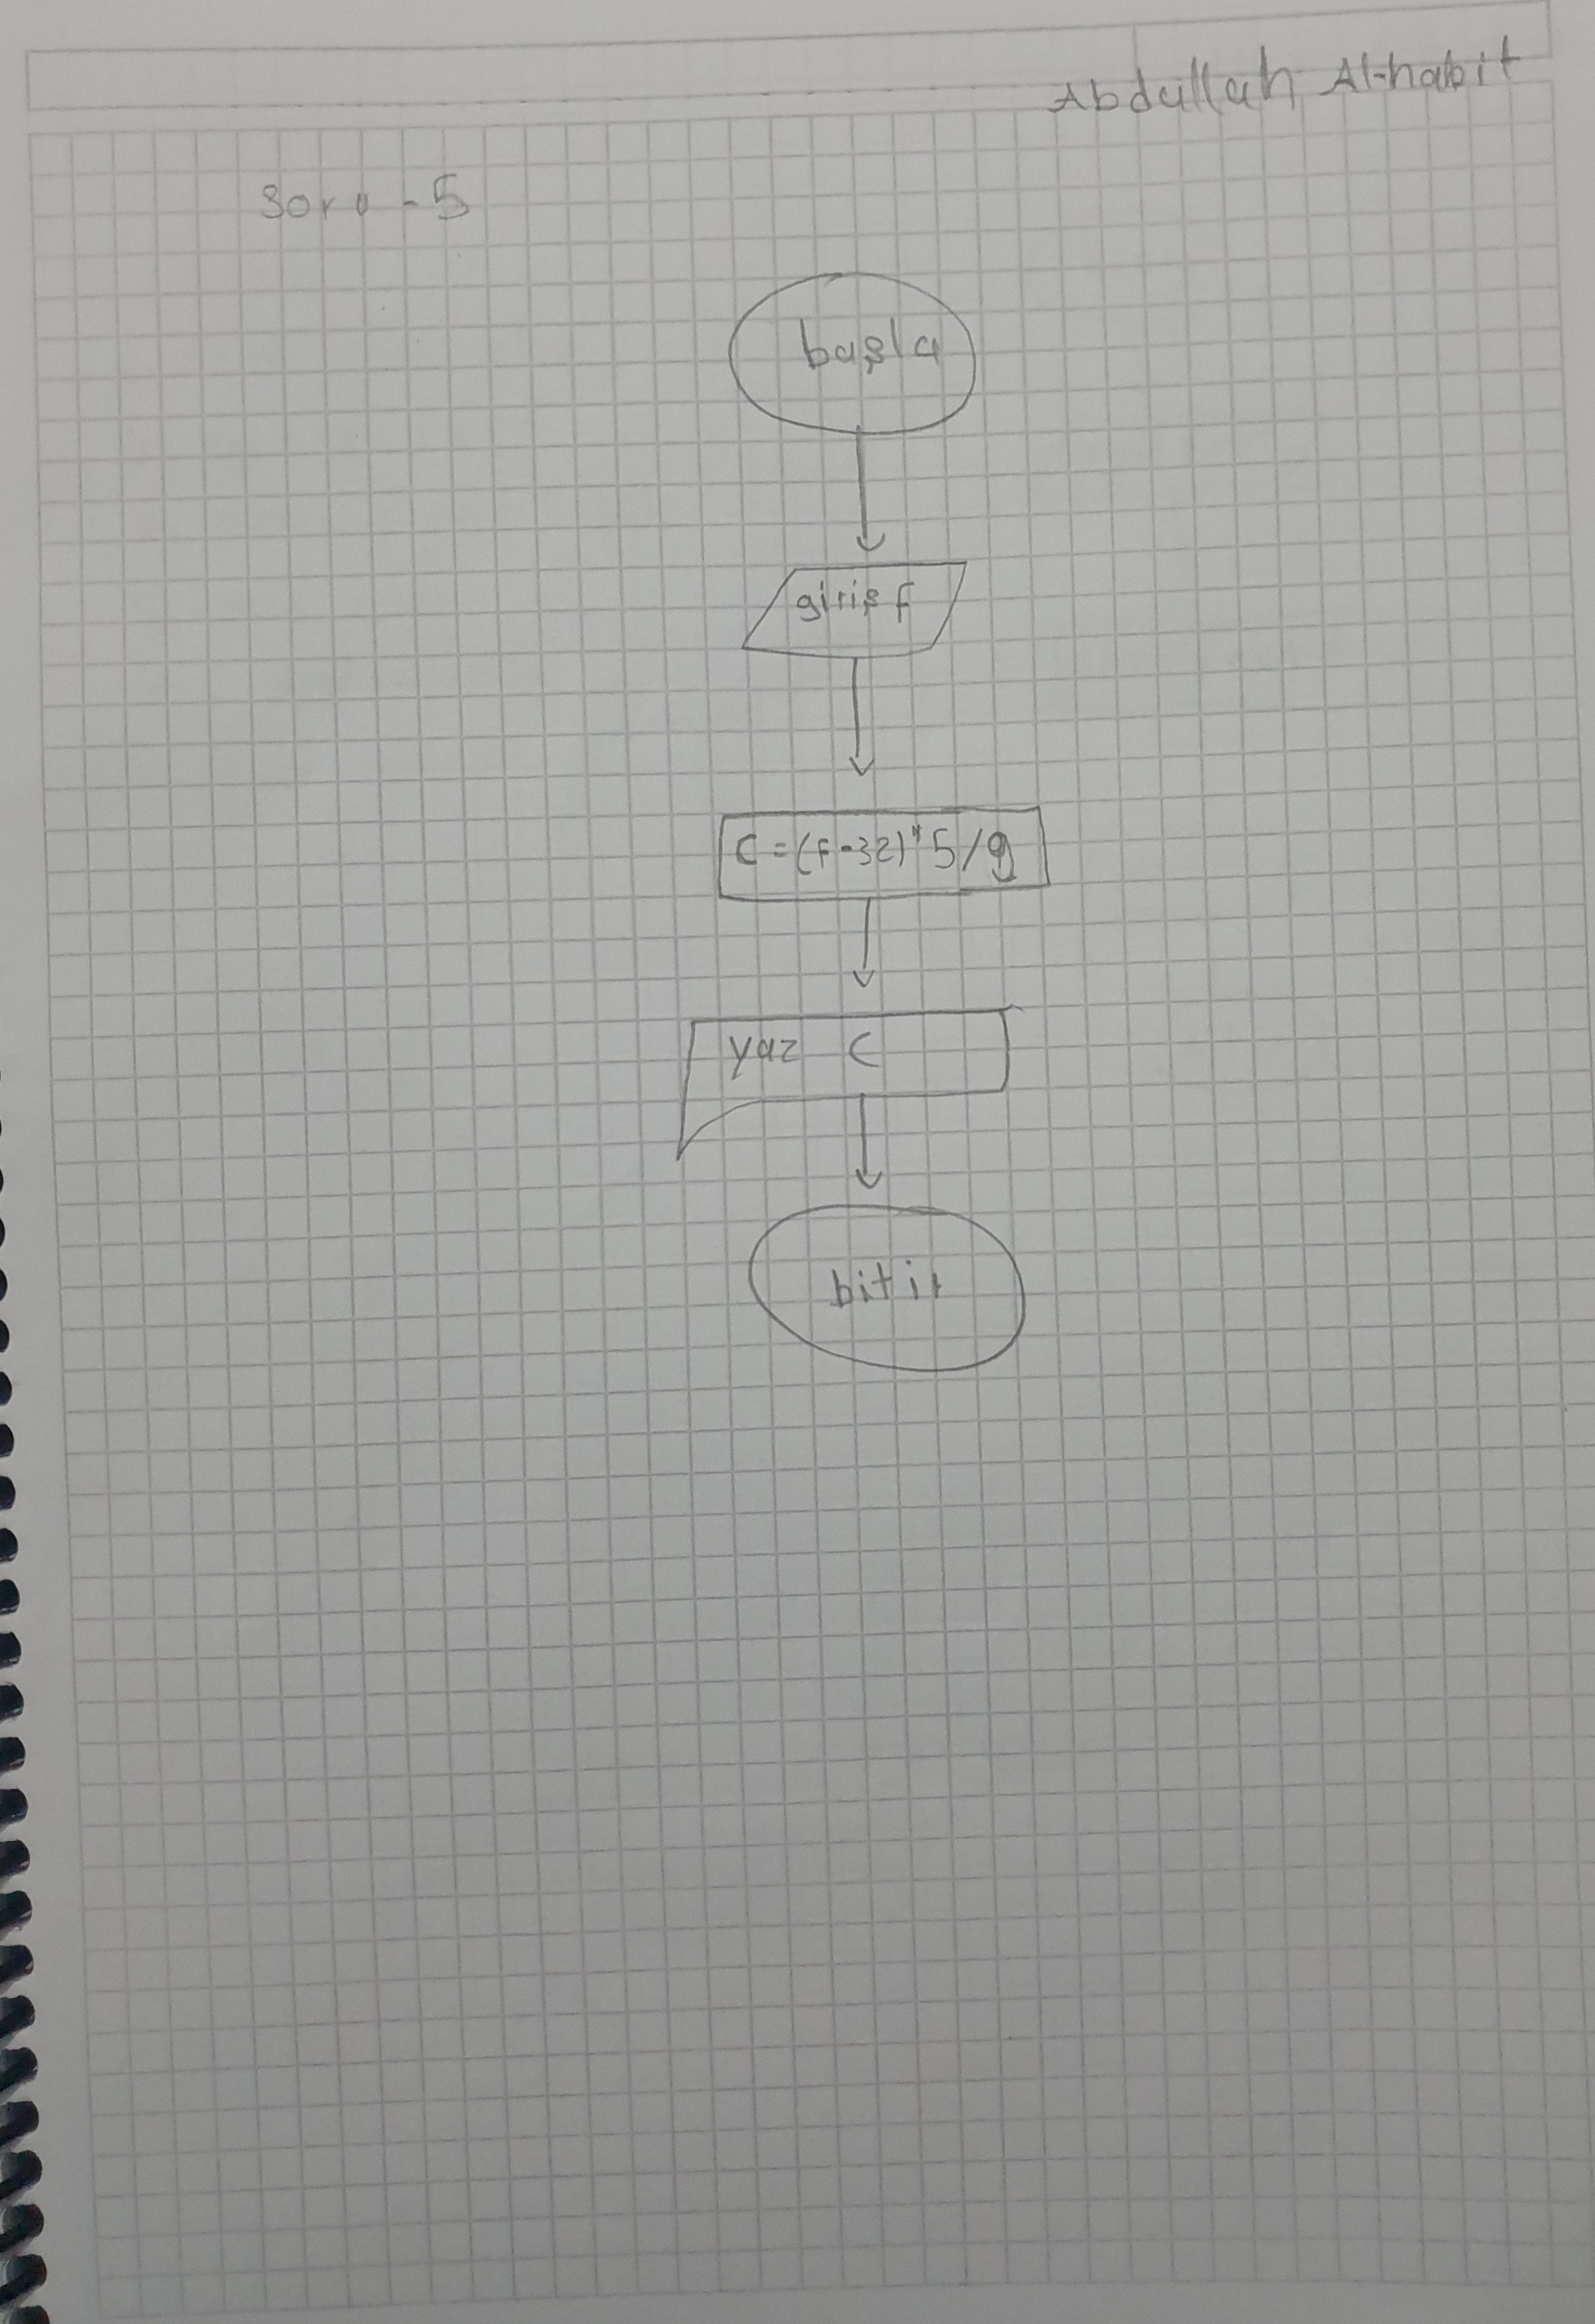 Abdullah Al-habit
Soru - 5
başla
giriş f
C = (F-32)*5/9
yaz C
bitir